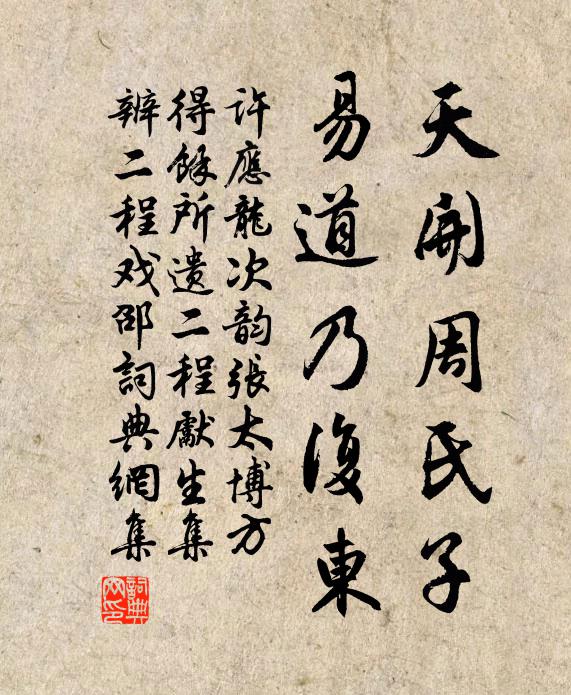 天開周氏子
易道乃復東
許應龍次韵張太博方
得餘所遺二程獻生集
辨二程戏邵詞典網集
詞典网印